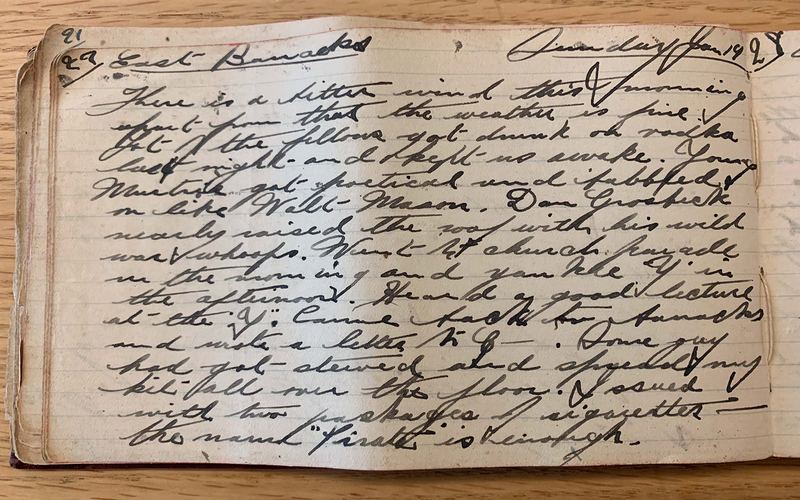 91
29 East Barracks Sunday Jan 19
There is a bitter wind this morning
apart from that the weather is fine.
Lot of the fellows got drunk on vodka
last night and kept us awake. Young
got poetical and
on like Walt Mason. Dan Grosbeck
nearly raised the roof with his wild
war whoops. Went to church parade
in the morning and yankee "Y" in
the afternoon. Heard a good lecture
at the "Y". Came back to barracks
and wrote a letter to C— . Some guy
had got stewed and spread my
kit all over the floor. Issued
with two packages of sigarettes —
the name "Pirate" is enough.